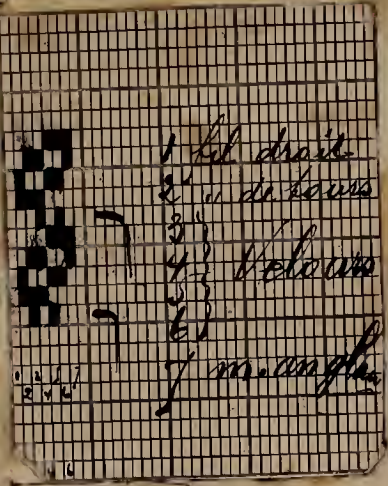 1 fil droit
2 " de tours
3 }
4 } Velours
5 }
6 }
7 m. anglais
1 3 5 7
2 4 6